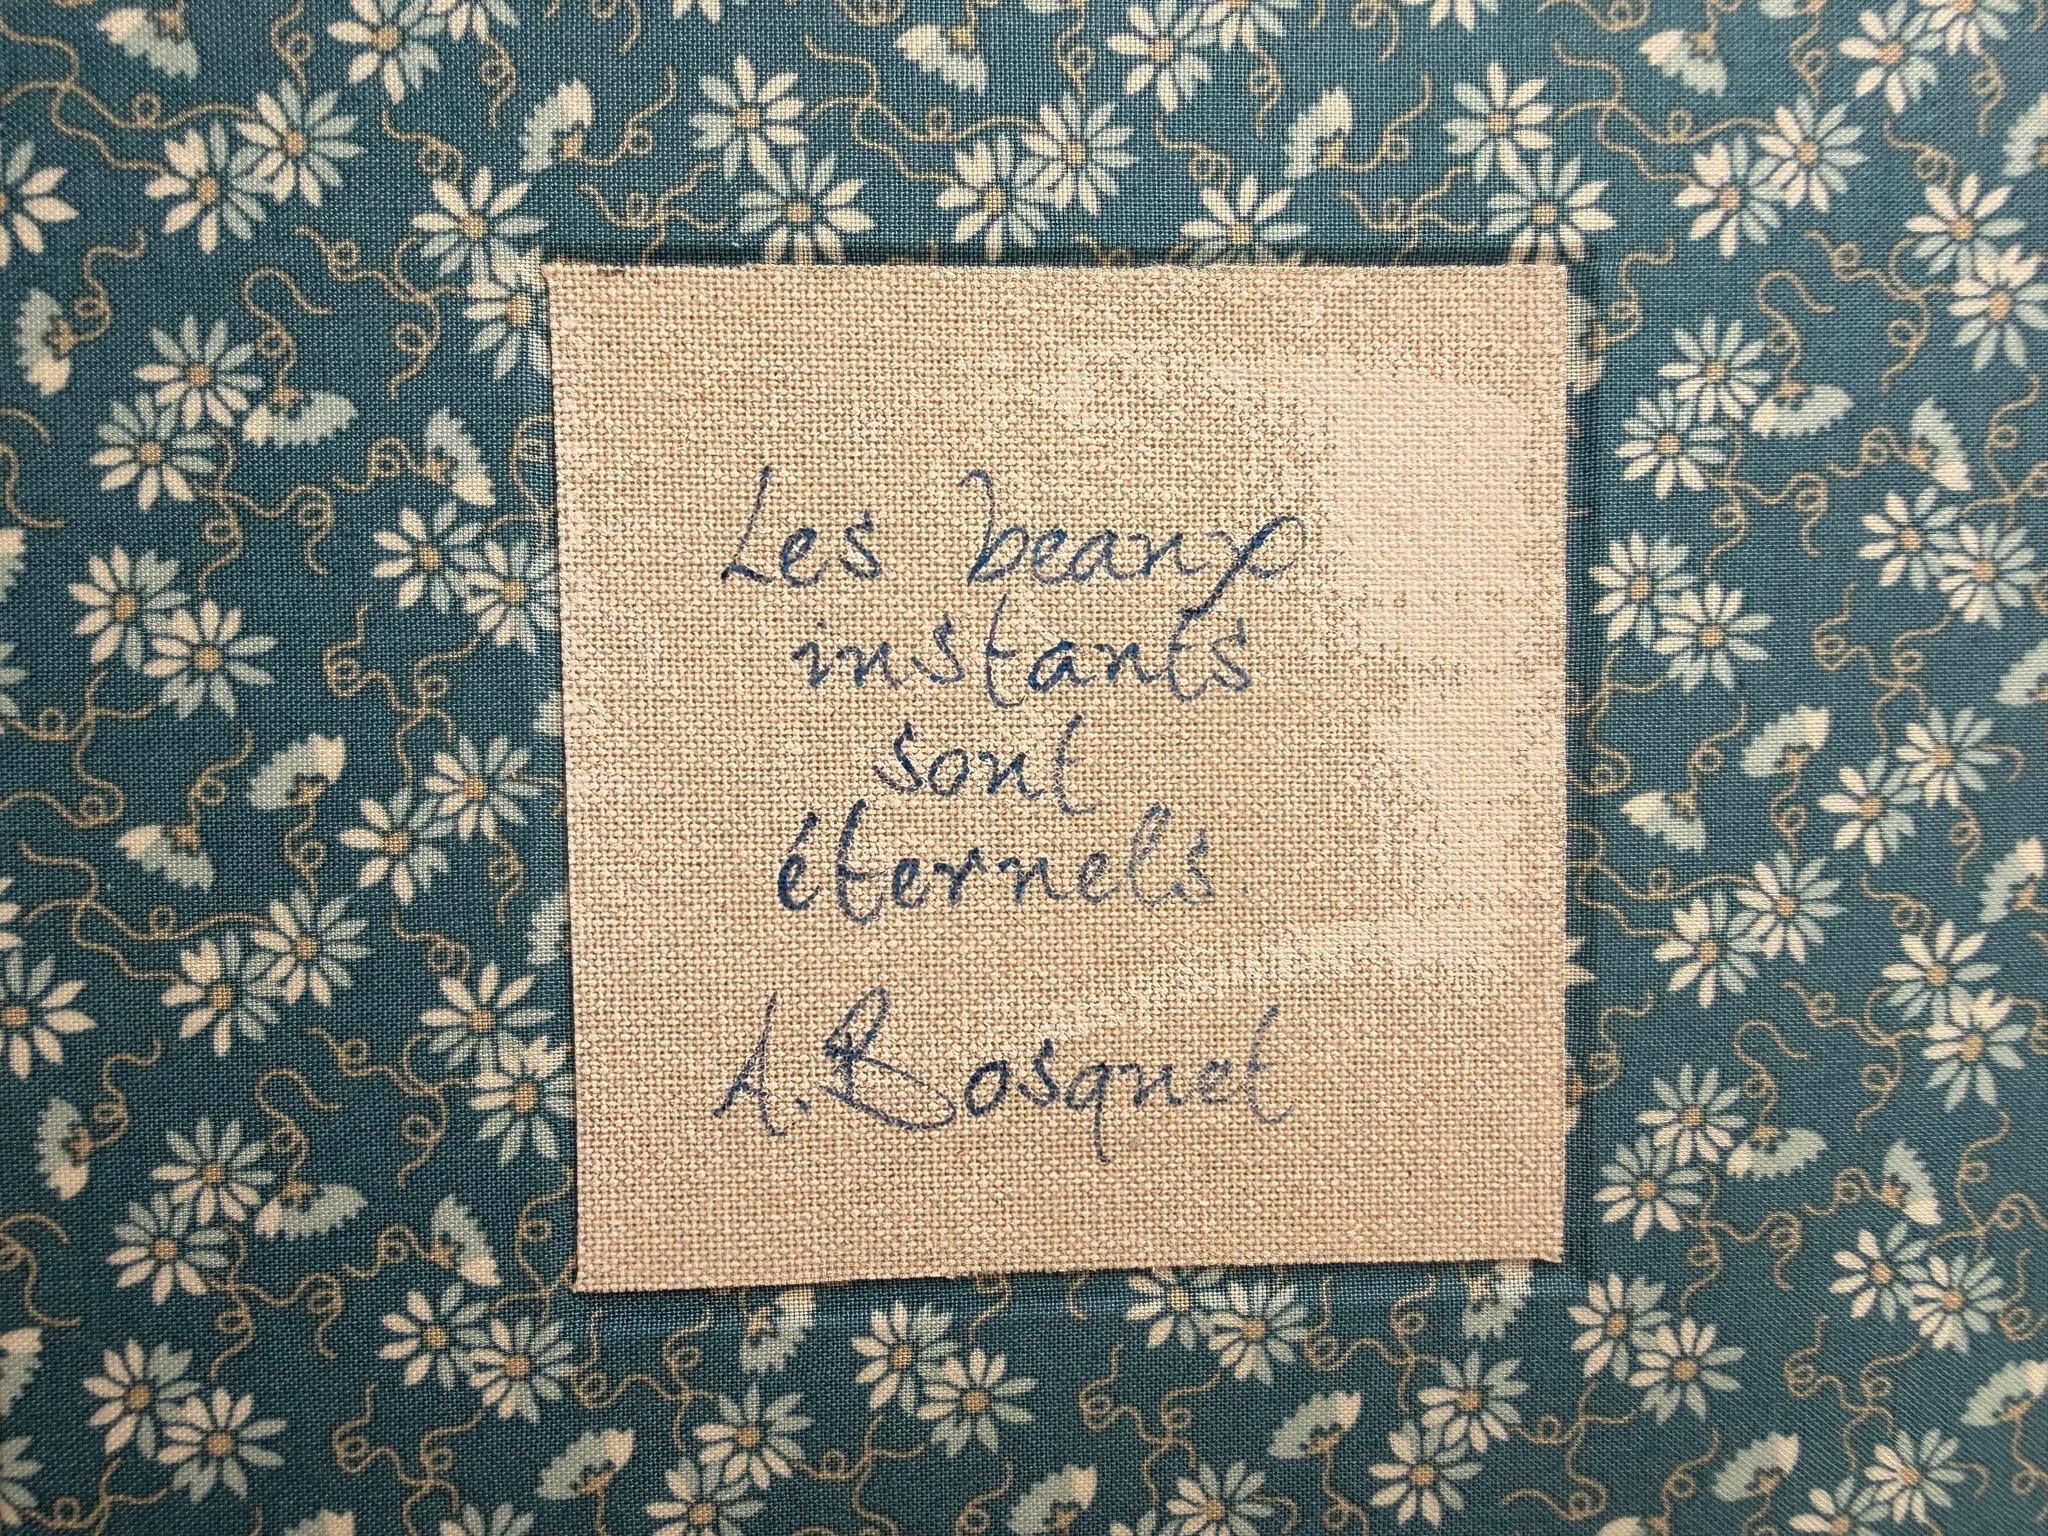 Les beaux
instants
sont
éternels.
A. Bosquet